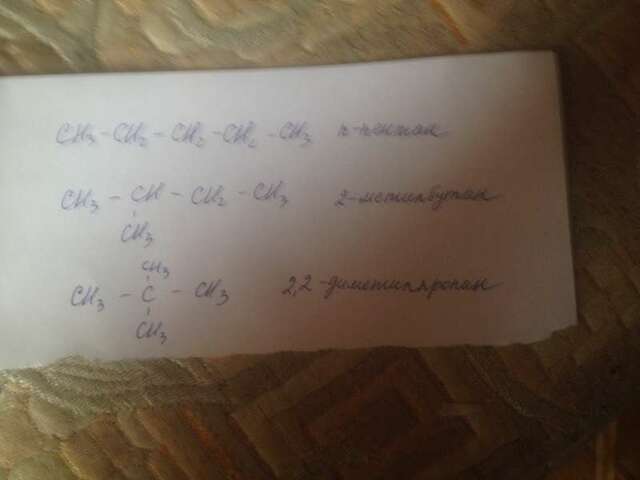 CH3 - CH2 - CH2 - CH2 - CH3 н-пентан
CH3 - CH - CH2 - CH3 2-метилбутан
CH3
CH3
CH3 - C - CH3 2,2-диметилпропан
CH3